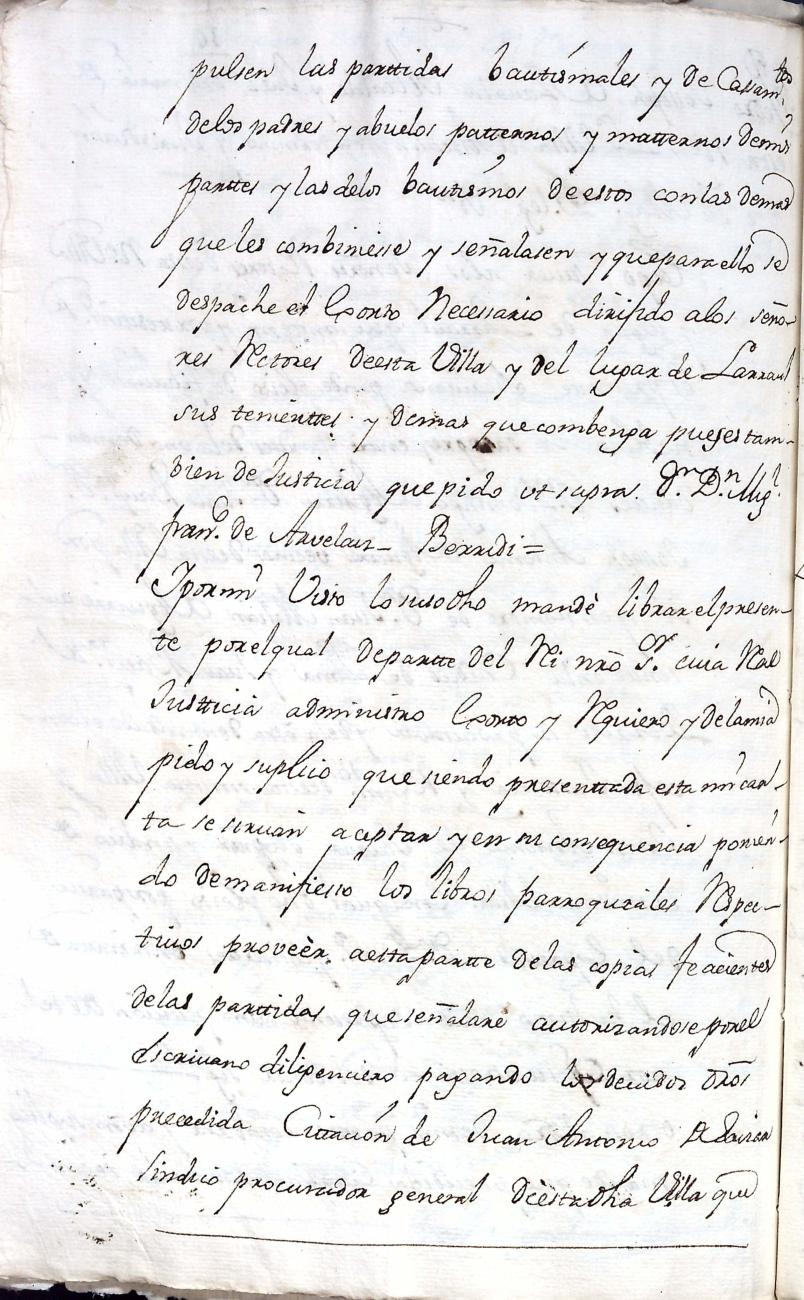 pulsen las parttidas bautismales y de Cassam.tos
delos padres y abuelos patternos y matternos demis
parttes y las delos bautismos de estos con las demas
que les combiniesse y señalasen y que para ello se
despache el Exorto Necessario dirijido alos seño-
res Rectores de esta Villa y del lugar de Larraul
sus tenienttes y demas que combenga pues es tam-
bien de Justicia que pido ut supra. D.n Mig.l
fran.co de Berridi =
Y por mi Visto lo susodho mandè librar el presen-
te por el qual de partte del Ri nro S.or cuia Real
Justticia administro Exorto y Requiero y dela mia
pido y suplico que siendo presenttada esta mi car-
ta se sirvan aceptar y en su consequencia ponien-
do de manifiesto los libros parroquiales Respec-
tivos proveèr a esta partte de las copias feacientes
delas parttidas que señalare autorizandose por el
Escrivano diligenciero pagando los devidos dros
precedida Cittación de Juan Antonio de
sindico procurador general de esta dha Villa que